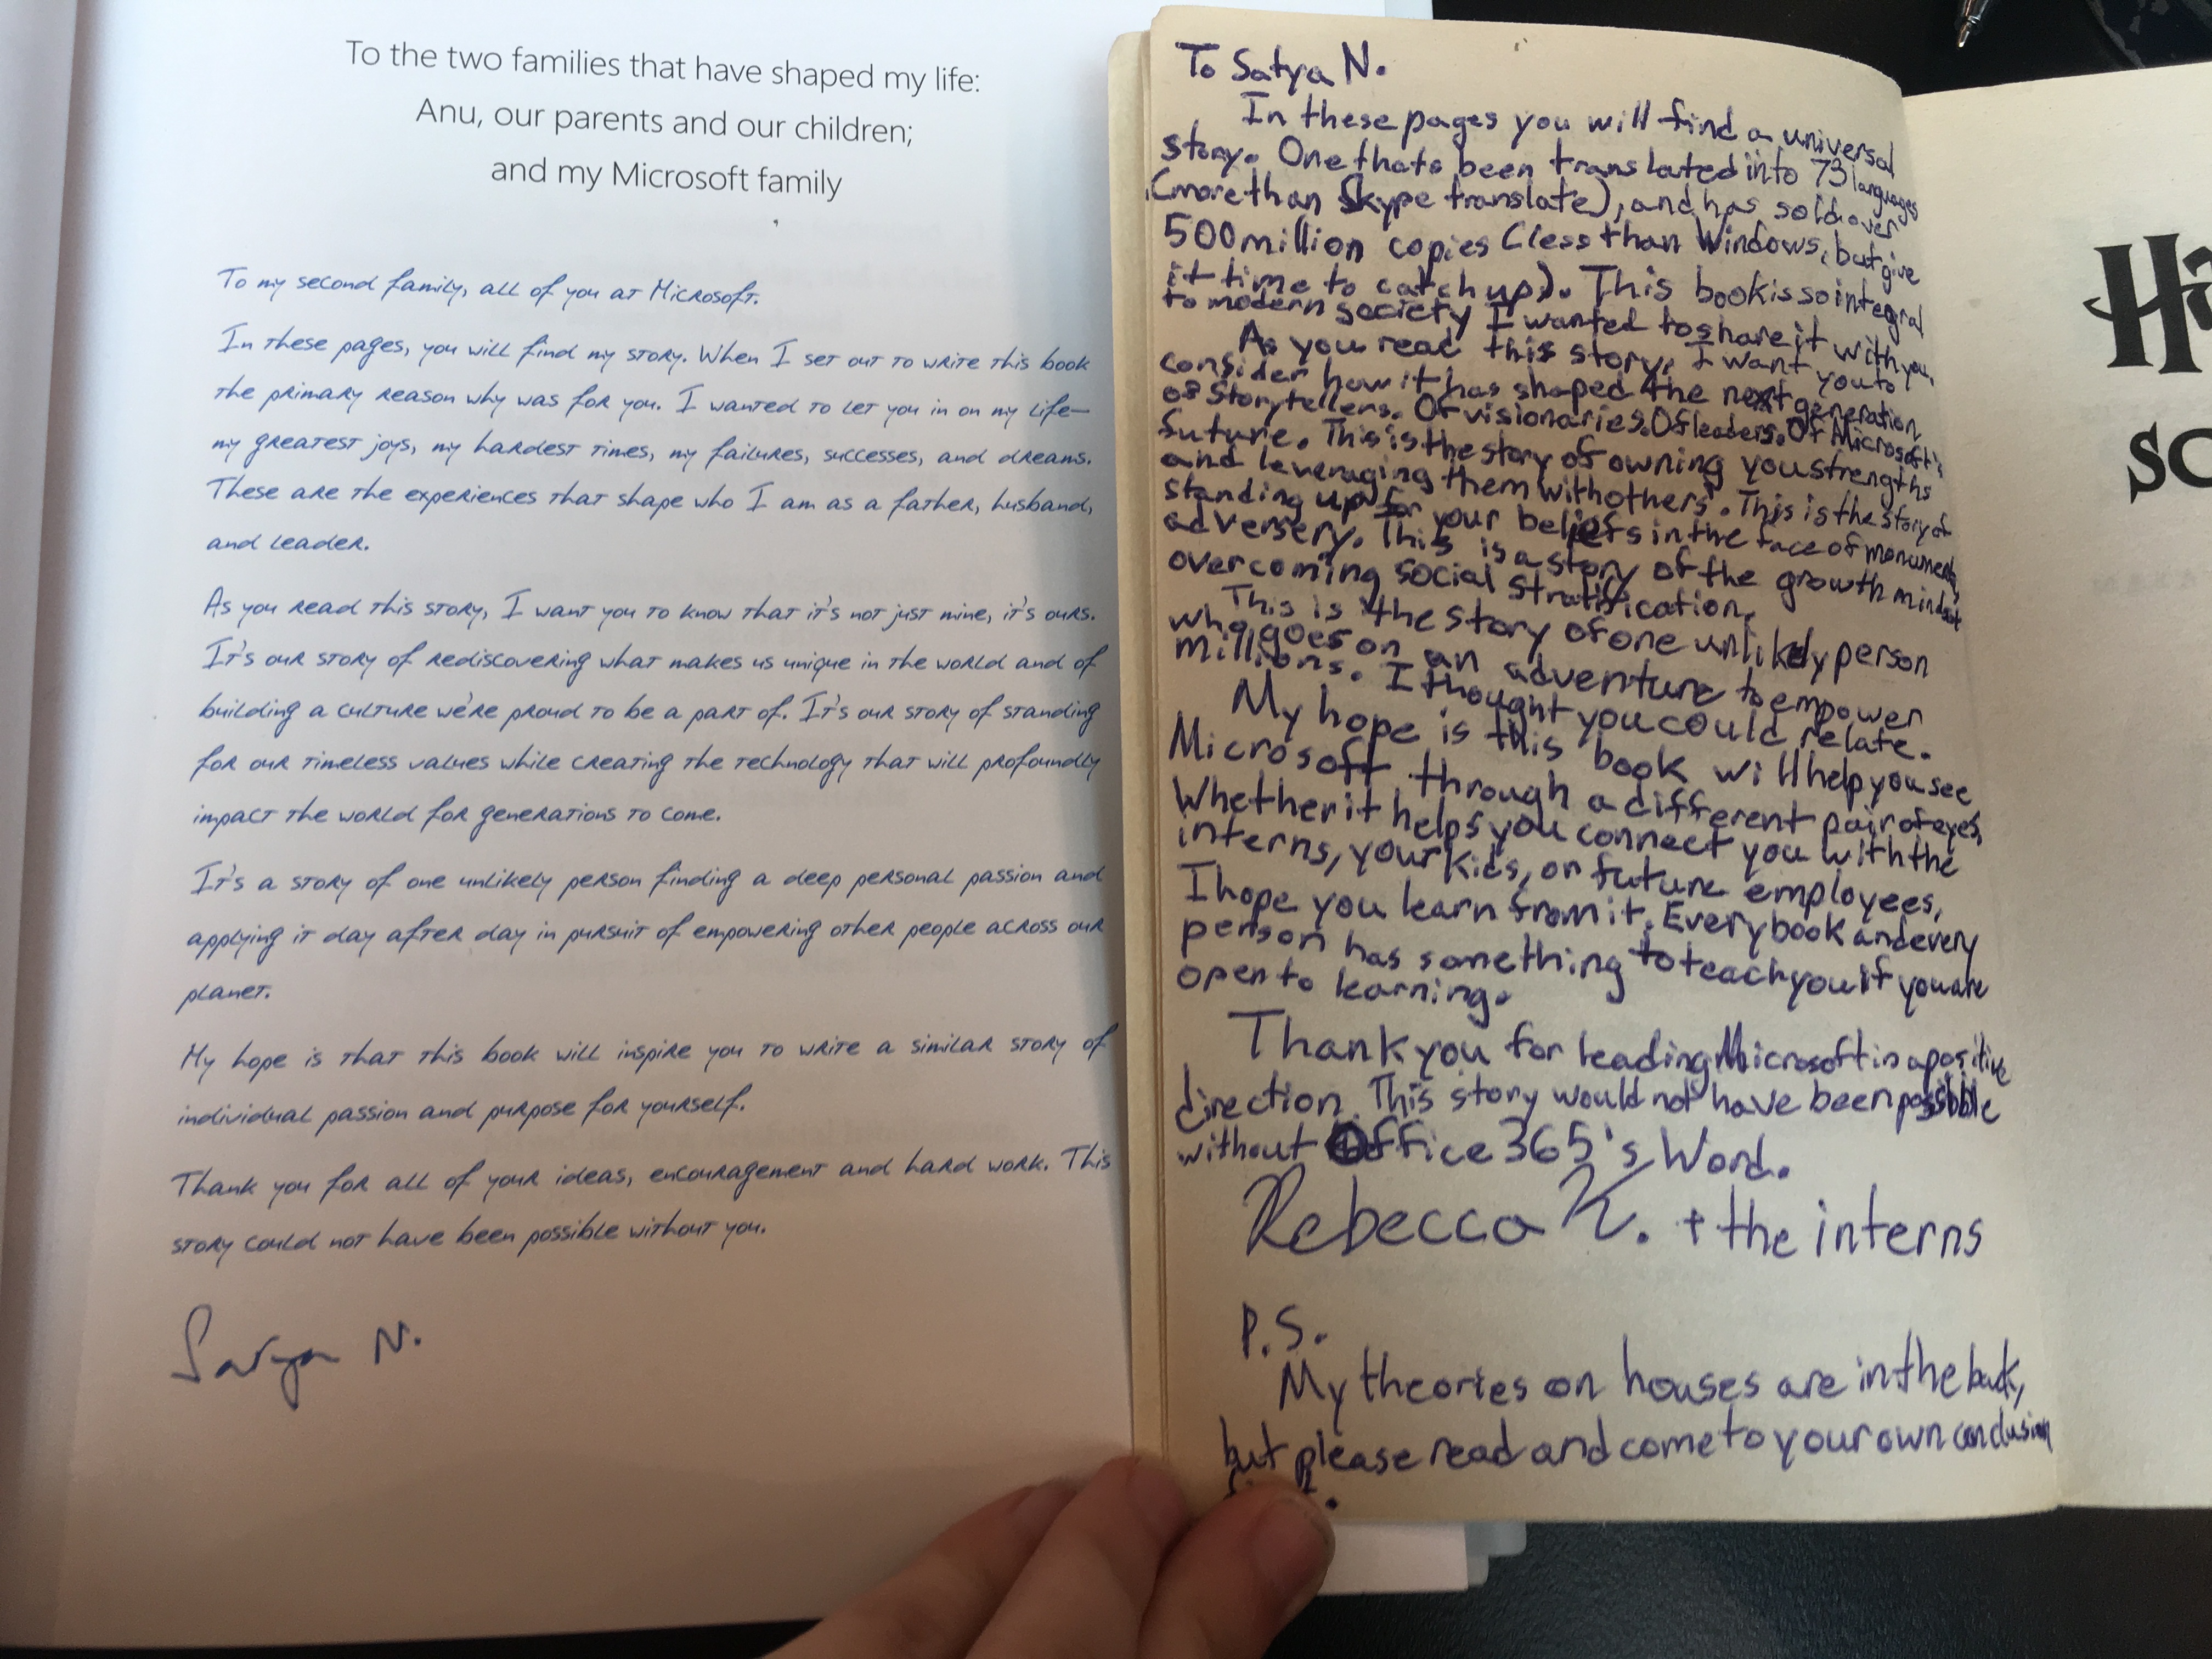 To the two families that have shaped my life:
Anu, our parents and our children;
and my Microsoft family
To my second family, all of you at Microsoft.
In these pages, you will find my story. When I set out to write this book
the primary reason why was for you. I wanted to let you in on my life—
my greatest joys, my hardest times, my failures, successes, and dreams.
These are the experiences that shape who I am as a father, husband,
and leader.
As you read this story, I want you to know that it's not just mine, it's ours.
It's our story of rediscovering what makes us unique in the world and of
building a culture we're proud to be a part of. It's our story of standing
for our timeless values while creating the technology that will profoundly
impact the world for generations to come.
It's a story of one unlikely person finding a deep personal passion and
applying it day after day in pursuit of empowering other people across our
planet.
My hope is that this book will inspire you to write a similar story of
individual passion and purpose for yourself.
Thank you for all of your ideas, encouragement and hard work. This
story could not have been possible without you.
Satya N.
To Satya N.
In these pages you will find a universal
story. One thats been translated into 73 languages
(more than Skype translate), and has sold over
500 million copies (less than Windows, but give
it time to catch up). This book is so integral
to modern society I wanted to share it with you.
As you read this story, I want you to
consider how it has shaped the next generation
of storytellers. Of visionaries. Of leaders. Of Microsoft's
future. This is the story of owning you strengths
and leveraging them with others'. This is the story of
standing up for your beliefs in the face of
adversery. This is a story of the growth mindset
overcoming social stratification.
This is the story of one unlikely person
who goes on an adventure to empower
millions. I thought you could relate.
My hope is this book will help you see
Microsoft through a different pair of eyes,
Whether it helps you connect you with the
interns, your kids, or future employees,
I hope you learn from it. Every book and every
person has something to teach you if you are
open to learning.
Thank you for leading Microsoft in a positive
direction. This story would not have been possible
without Office 365's Word.
Rebecca K. + the interns
P.S.
My theories on houses are in the back,
but please read and come to your own conclusion